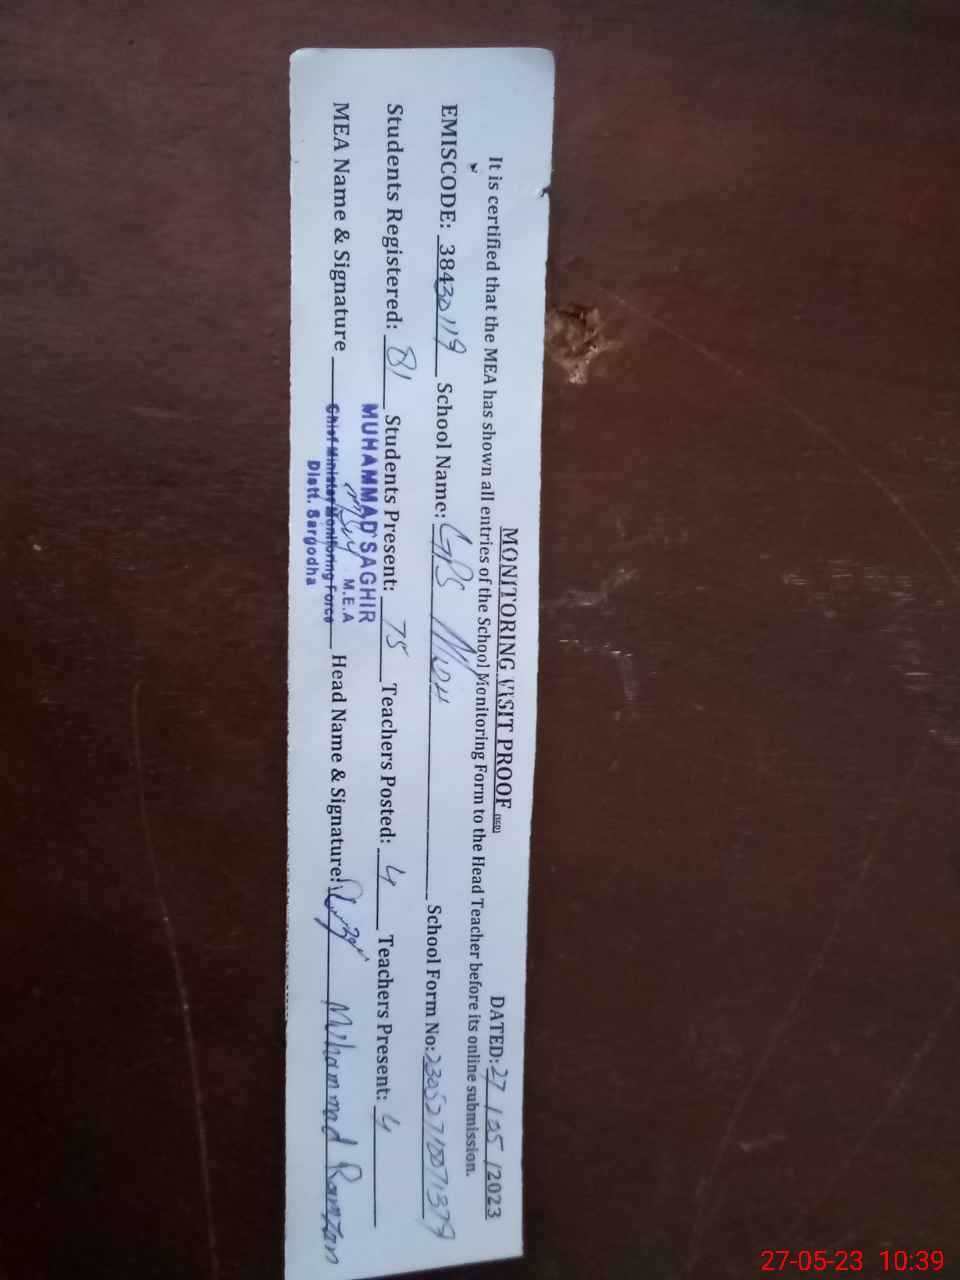 MONITORING VISIT PROOF (SED)
DATED: 27/05/2023
It is certified that the MEA has shown all entries of the School Monitoring Form to the Head Teacher before its online submission.
EMISCODE: 38430119 School Name: GPS School Form No: 23052710071379
Students Registered: 81 Students Present: 75 Teachers Posted: 4 Teachers Present: 4
MEA Name & Signature Head Name & Signature: Muhammad Ramzan
MUHAMMAD SAGHIR
M.E.A
Chief Minister Monitoring Force
Distt. Sargodha
27-05-23 10:39